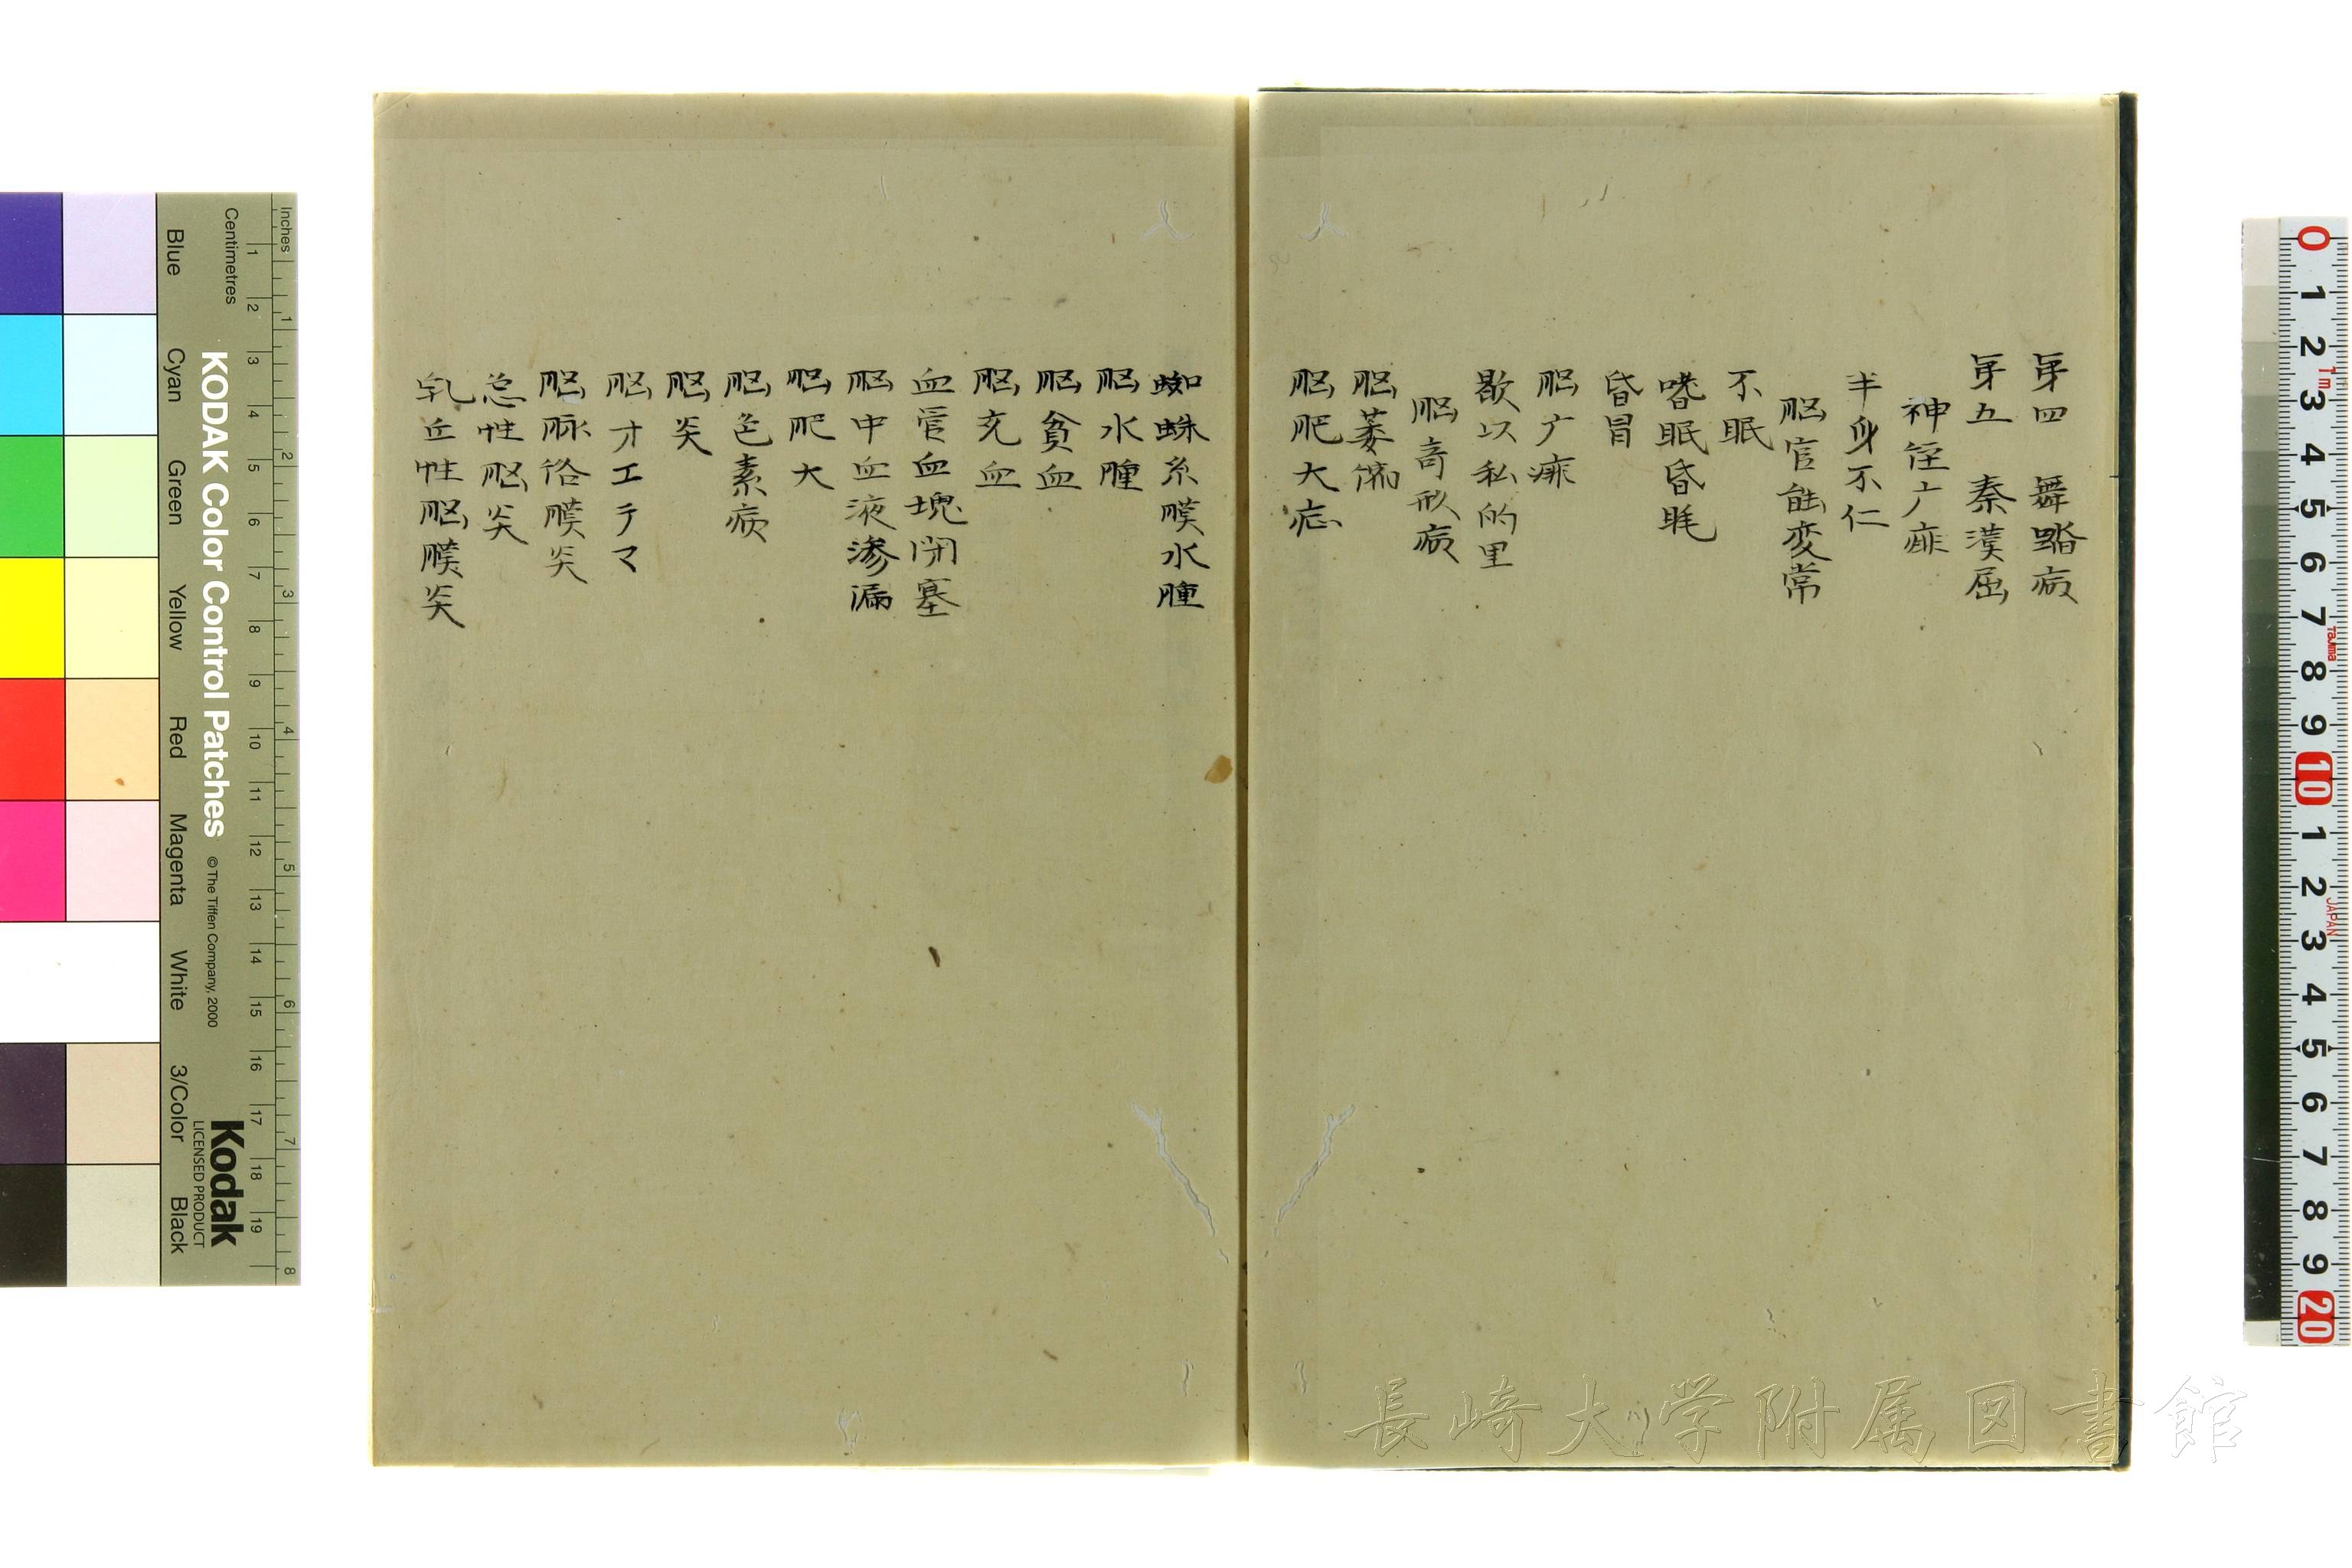 苐四　舞踏病
苐五　泰漢屈
神経广痺
半身不仁
脳官能変常
不眠
嗜眠昏眊
昏冒
脳广痺
歇以私的里
脳奇形病
脳萎縮
脳肥大症
蜘蛛糸膜水腫
脳水腫
脳貧血
脳充血
血管血塊閉塞
脳中血液滲漏
脳肥大
脳色素病
脳炎
脳オエテマ
脳脉絡膜炎
急性脳炎
乳丘性脳膜炎
長崎大学附属図書館
Inches
Centimetres
1 2 3 4 5 6 7 8
1 2 3 4 5 6 7 8 9 10 11 12 13 14 15 16 17 18 19
KODAK Color Control Patches
©The Tiffen Company, 2000
Kodak
LICENSED PRODUCT
Blue
Cyan
Green
Yellow
Red
Magenta
White
3/Color
Black
0 1 2 3 4 5 6 7 8 9 10 1 2 3 4 5 6 7 8 9 20
1m
Tajima
JAPAN